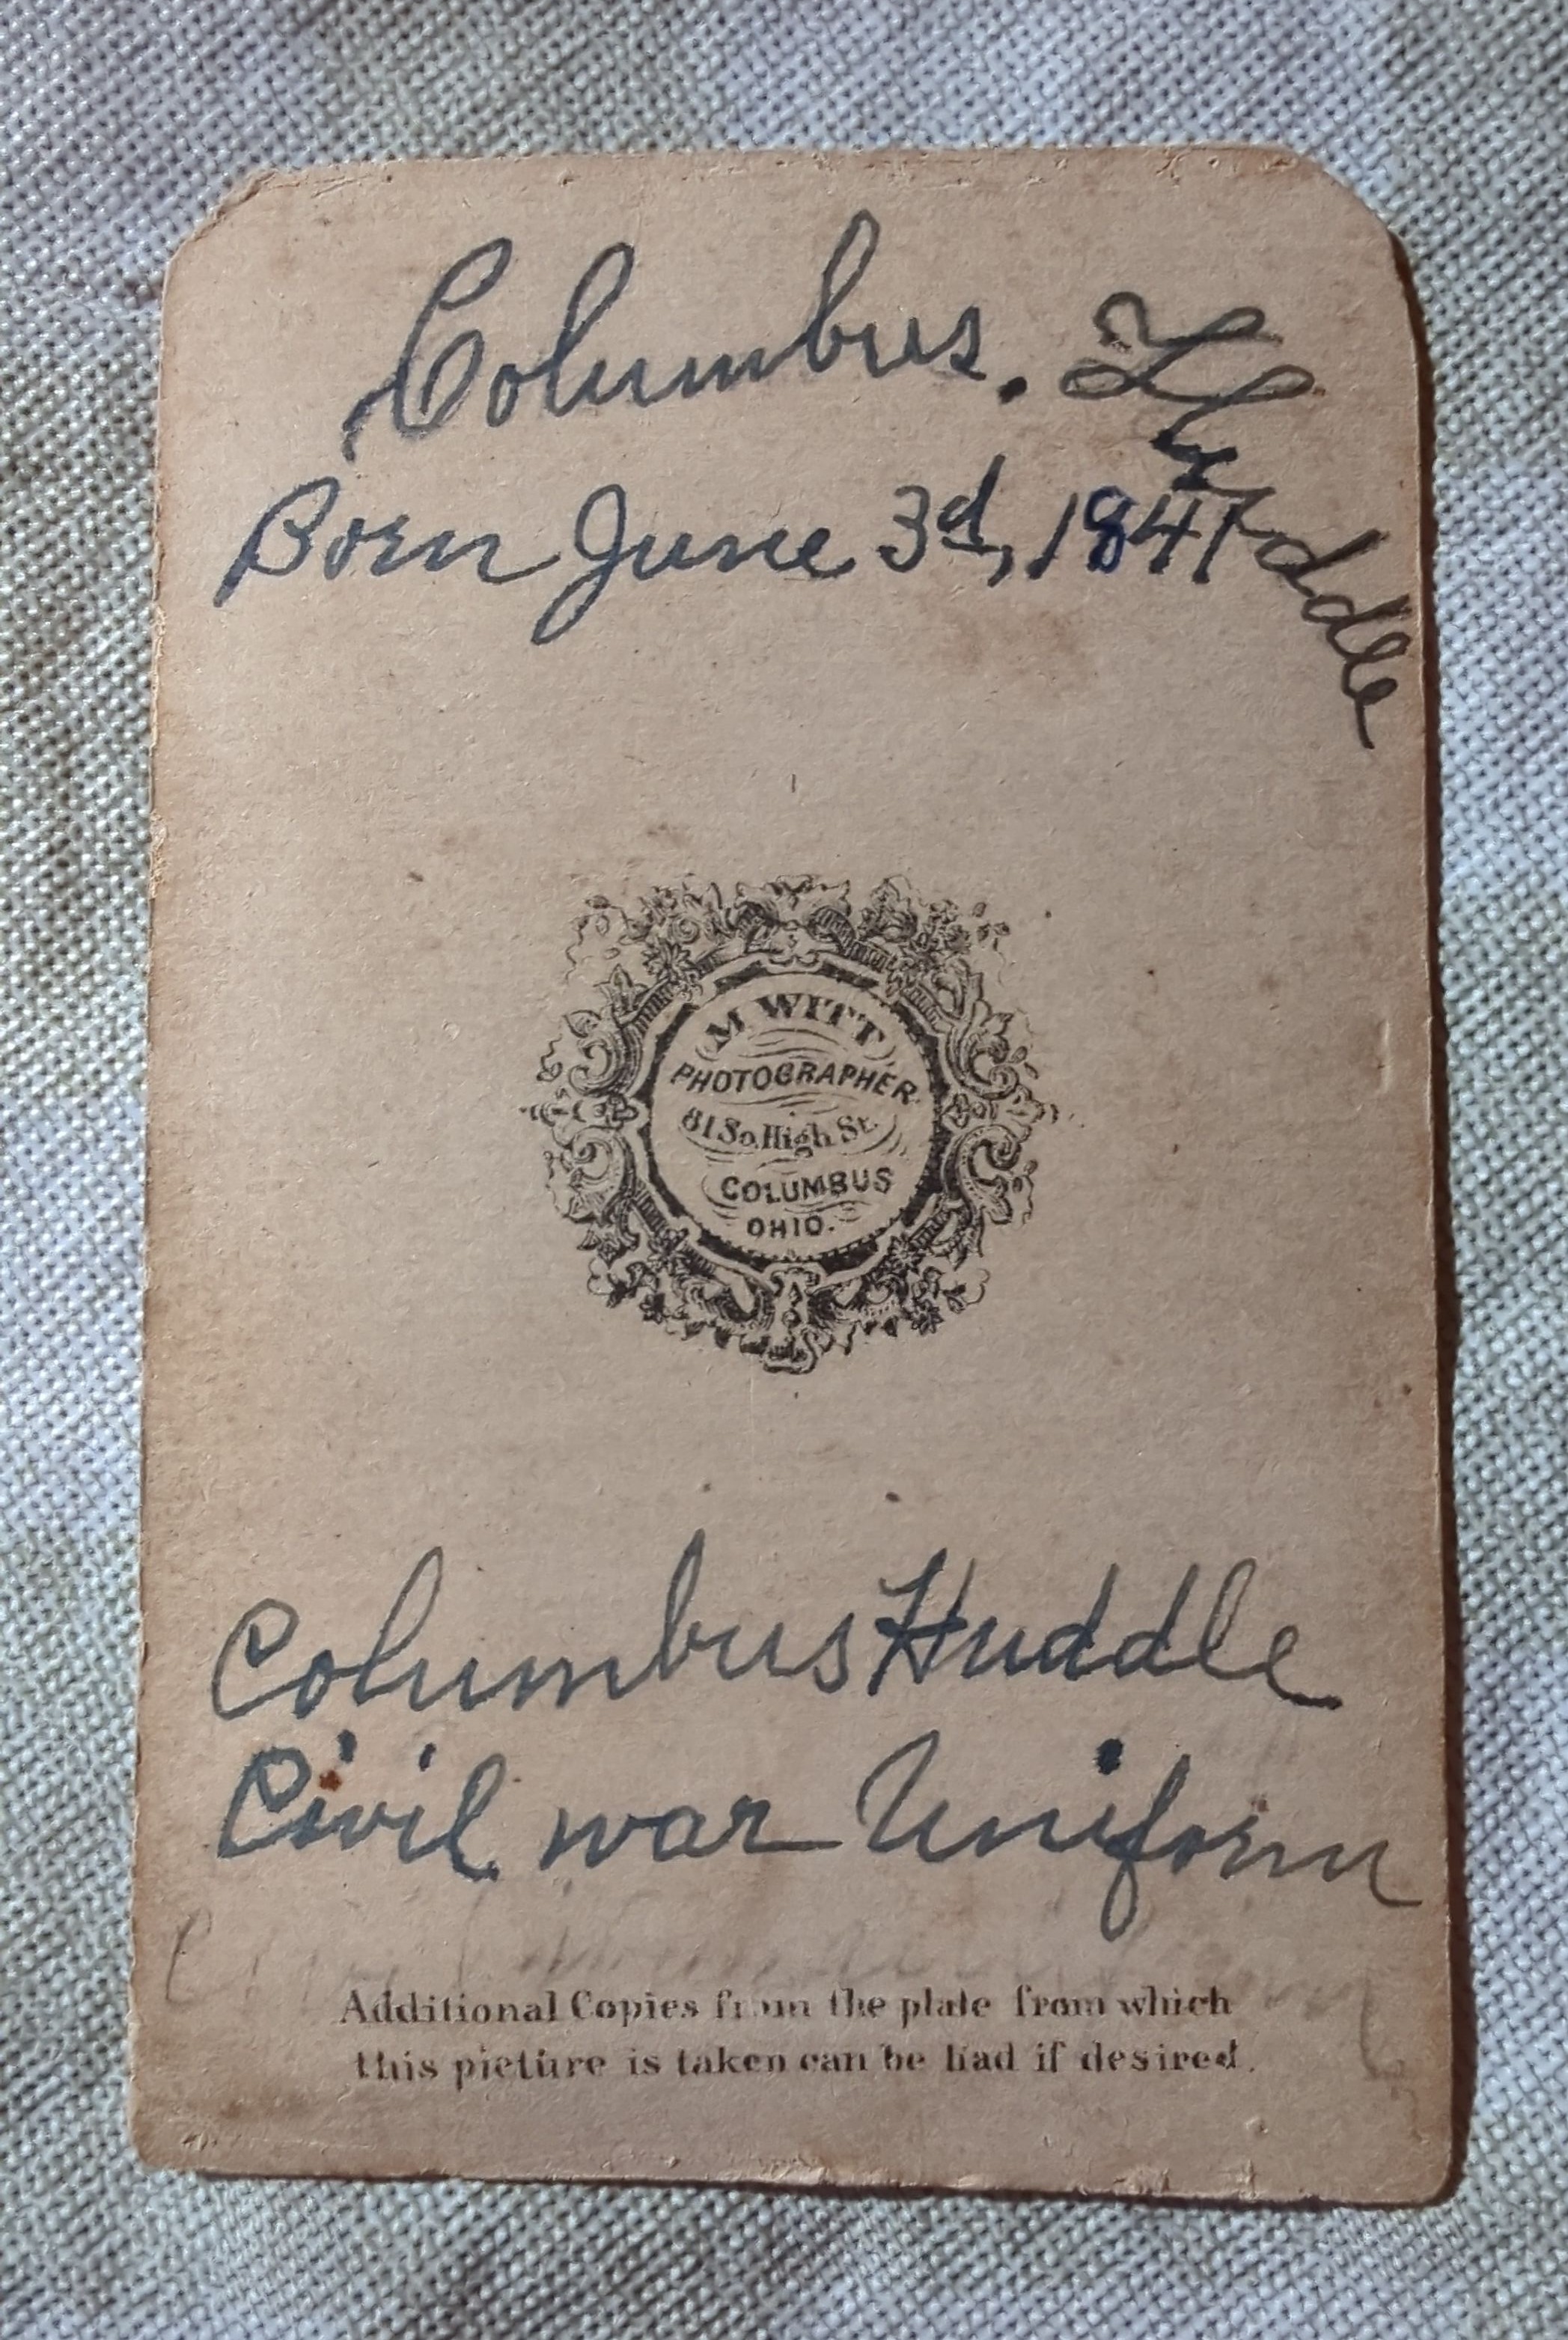 Columbus. Huddle
Born June 3d, 1841
M. WITT
PHOTOGRAPHER.
81 So. High St.
COLUMBUS
OHIO.
Columbus Huddle
Civil war Uniform
Additional Copies from the plate from which
this picture is taken can be had if desired.